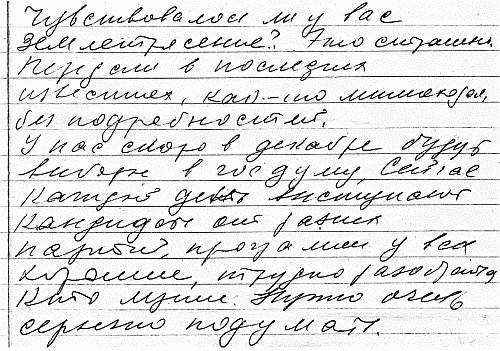 Чувствовалось ли у вас
землетрясение? Это страшно.
Передали в последних
известиях, как-то мимоходом,
без подробностей.
У нас скоро в декабре будут
выборы в госдуму, Сейчас
каждый день выступают
кандидаты от разных
партий, программы у всех
хорошие, трудно разобраться
кто лучше. Нужно очень
серьезно подумать.